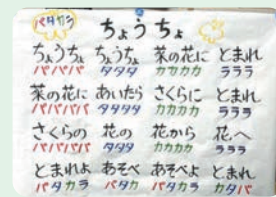 パタカラ
ちょうちょ
ちょうちょ ちょうちょ 菜の花に とまれ
パパパパ タタタ カカカカ ラララ
菜の花に あいたら さくらに とまれ
パパパパパ タタタタ カカカカ ラララ
さくらの 花の 花から 花へ
パパパパ タタタ カカカカ ラララ
とまれよ あそべ あそべよ とまれ
パタカラ パタカ パタカラ カタパ